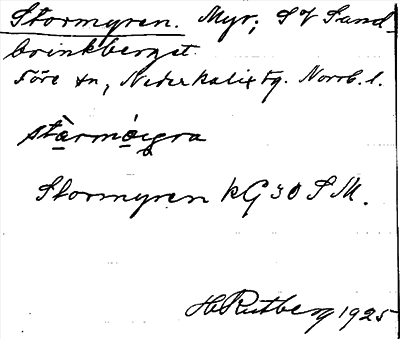 Stormyren. Myr; S V Sand-
brinkberget
Före sn, Nederkalix tg. Norrb. l.
Stormyren kG 30 S M.
H Rutberg 1925